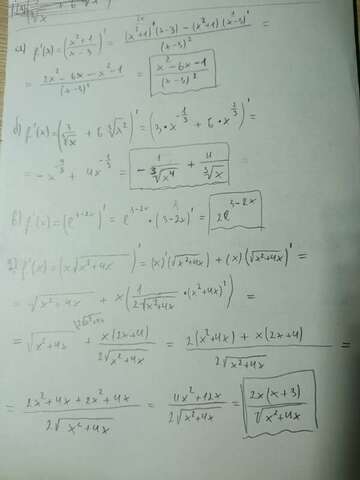 а) f'(x) = ((x²+1)/(x-3))' = ((x²+1)'(x-3) - (x²+1)(x-3)')/(x-3)² =
= (2x² - 6x - x² - 1)/(x-3)² = (x² - 6x - 1)/(x-3)²
б) f'(x) = (3/∛x + 6∛x²)' = (3·x^(-1/3) + 6·x^(2/3))' =
= -x^(-4/3) + 4x^(-1/3) = -1/∛x⁴ + 4/∛x =
в) f'(x) = (e^(3-2x))' = e^(3-2x)·(3-2x)' = 2e^(3-2x)
г) f'(x) = (x√(x²+4x))' = (x)'(√(x²+4x)) + (x)(√(x²+4x))' =
= √(x²+4x) + x(1/(2√(x²+4x))·(x²+4x)') =
= √(x²+4x) + x(2x+4)/(2√(x²+4x)) = (2(x²+4x) + x(2x+4))/(2√(x²+4x)) =
= (2x²+4x+2x²+4x)/(2√(x²+4x)) = (4x²+12x)/(2√(x²+4x)) = 2x(x+3)/√(x²+4x)